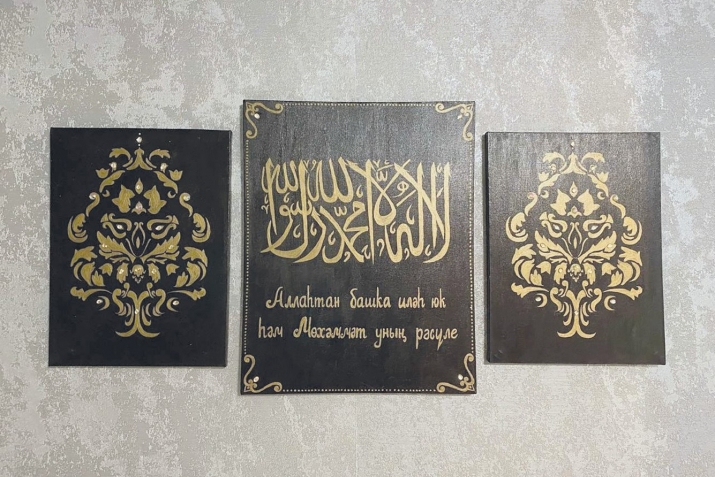 لا إله إلا الله محمد رسول الله
Аллаһтан башка иләһ юк
һәм Мөхәммәт уның рәсүле